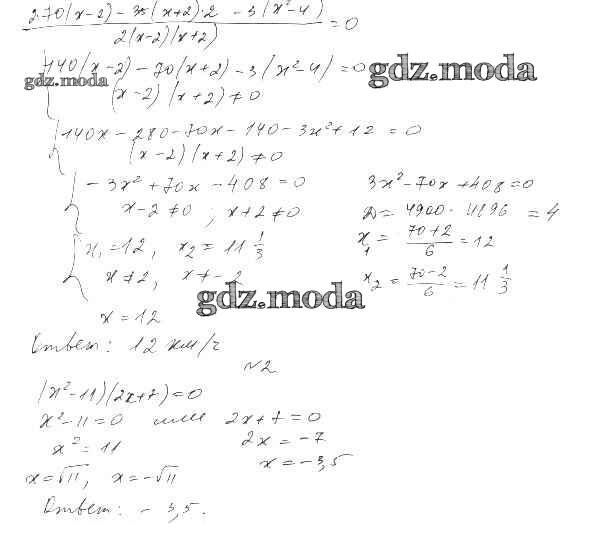 2·70(x-2) - 35(x+2)·2 - 3(x²-4) / 2(x-2)(x+2) = 0
140(x-2) - 70(x+2) - 3(x²-4) = 0
gdz.moda
gdz.moda
(x-2)(x+2) ≠ 0
140x - 280 - 70x - 140 - 3x² + 12 = 0
(x-2)(x+2) ≠ 0
-3x² + 70x - 408 = 0
3x² - 70x + 408 = 0
x-2 ≠ 0 ; x+2 ≠ 0
D = 4900 - 4896 = 4
x₁ = 12, x₂ = 11 1/3
x₁ = (70+2)/6 = 12
x ≠ 2, x ≠ -2
x₂ = (70-2)/6 = 11 1/3
gdz.moda
x = 12
Ответ: 12 км/ч
№2
(x²-11)(2x+7) = 0
x²-11 = 0 или 2x+7 = 0
x² = 11
2x = -7
x = -3,5
x = √11, x = -√11
Ответ: -3,5.